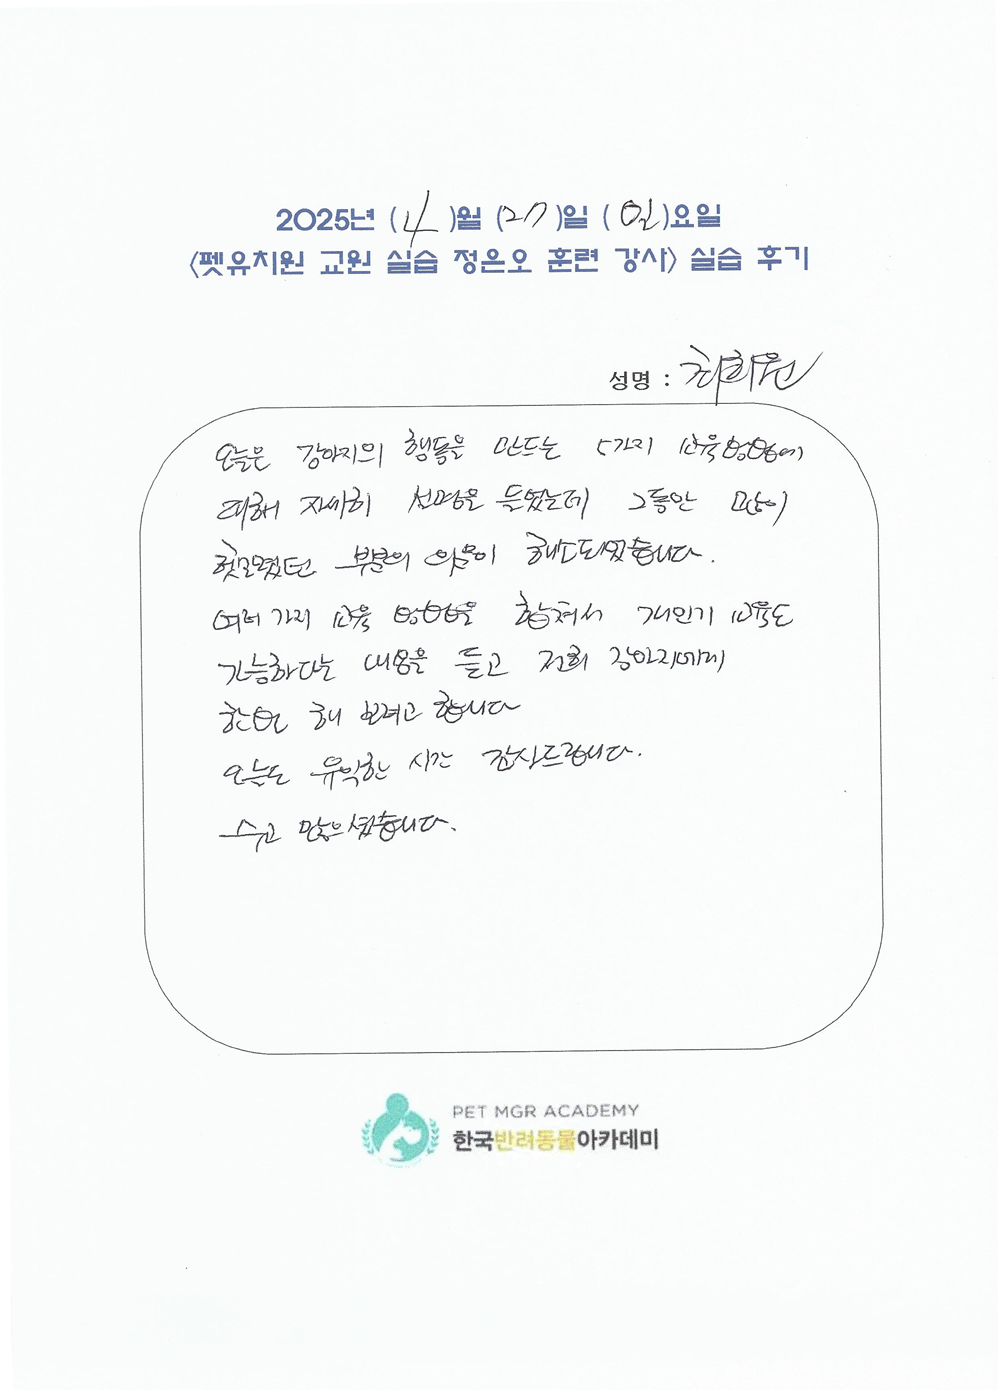 2025년 (4)월 (27)일 (일)요일
<펫유치원 교원 실습 정은오 훈련 강사> 실습 후기
성명 : 최희원
오늘은 강아지의 행동을 만드는 5가지 교육방법에
대해 자세히 설명을 들었는데 그동안 많이
헷갈렸던 부분의 의문이 해소되었습니다.
여러가지 교육 방법을 합쳐서 개인기 교육도
가능하다는 내용을 듣고 저희 강아지에게
한번 해 보려고 합니다
오늘도 유익한 시간 감사드립니다.
수고 많으셨습니다.
PET MGR ACADEMY
한국반려동물아카데미